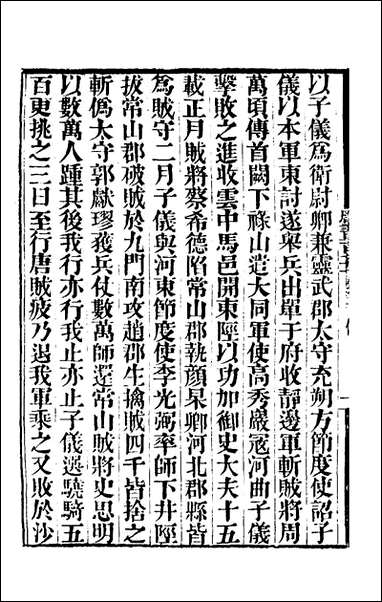 以子儀爲衛尉卿兼靈武郡太守充朔方節度使詔子
儀以本軍東討遂舉兵出單于府收靜邊軍斬賊將周
萬頃傳首闕下祿山遣大同軍使高秀巖寇河曲子儀
擊敗之進收雲中馬邑開東陘以功加御史大夫十五
載正月賊將蔡希德陷常山郡執顏杲卿河北郡縣皆
爲賊守二月子儀與河東節度使李光弼率師下井陘
拔常山郡破賊於九門南攻趙郡生擒賊四千皆捨之
斬僞太守郭獻璆獲兵仗數萬師還常山賊將史思明
以數萬人踵其後我行亦行我止亦止子儀選驍騎五
百更挑之三日至行唐賊疲乃退我軍乘之又敗於沙